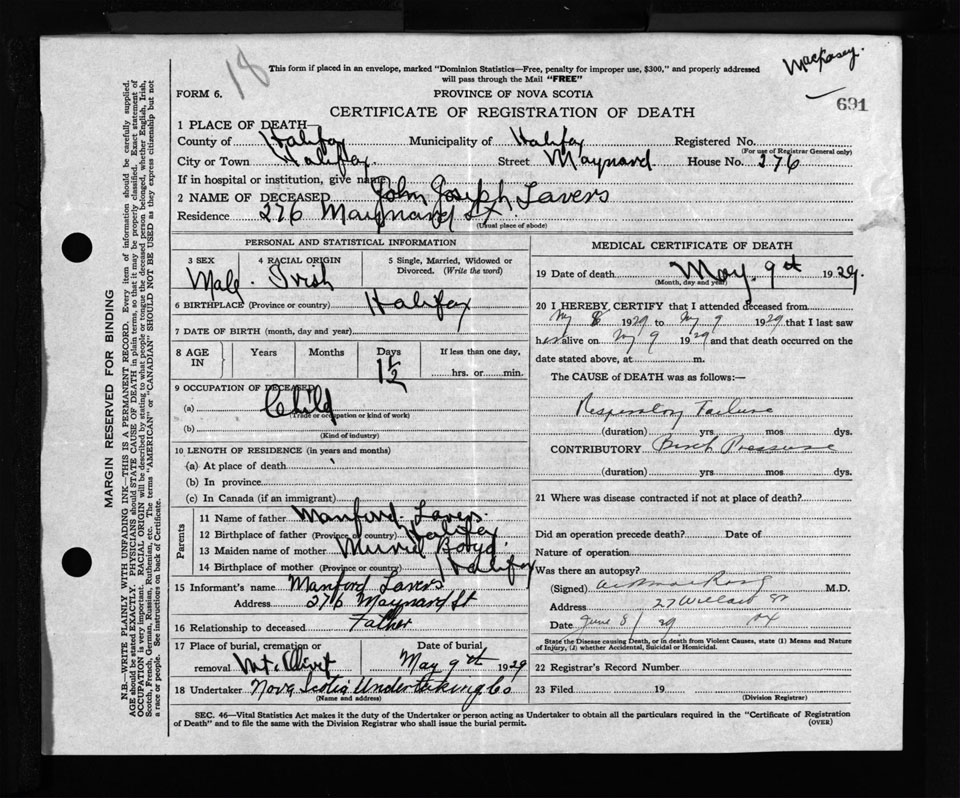 18
Mackasey.
This form if placed in an envelope, marked "Dominion Statistics—Free, penalty for improper use, $300," and properly addressed
will pass through the Mail "FREE"
FORM 6.
PROVINCE OF NOVA SCOTIA
691
CERTIFICATE OF REGISTRATION OF DEATH
1 PLACE OF DEATH
County of Halifax Municipality of Halifax Registered No.
(For use of Registrar General only)
City or Town Halifax Street Maynard House No. 276
If in hospital or institution, give name
2 NAME OF DECEASED John Joseph Lavers
Residence 276 Maynard St.
(Usual place of abode)
PERSONAL AND STATISTICAL INFORMATION
3 SEX 4 RACIAL ORIGIN 5 Single, Married, Widowed or
Divorced. (Write the word)
Male. Irish
6 BIRTHPLACE (Province or country) Halifax
7 DATE OF BIRTH (month, day and year)
8 AGE IN Years Months Days If less than one day,
1 1/2 hrs. or min.
9 OCCUPATION OF DECEASED
(a) Child
(Trade or occupation or kind of work)
(b)
(Kind of industry)
10 LENGTH OF RESIDENCE (in years and months)
(a) At place of death
(b) In province
(c) In Canada (if an immigrant)
Parents
11 Name of father Manford Lavers.
12 Birthplace of father (Province or country) Halifax
13 Maiden name of mother Muriel Boyd
14 Birthplace of mother (Province or country) Halifax
15 Informant's name Manford Lavers
Address 276 Maynard St
16 Relationship to deceased Father
17 Place of burial, cremation or Date of burial.
removal Mt. Olivet May 9th 1929
18 Undertaker Nova Scotia Undertaking Co
(Name and address)
MEDICAL CERTIFICATE OF DEATH
19 Date of death May. 9th 1929.
(Month, day and year)
20 I HEREBY CERTIFY that I attended deceased from
My 8 1929 to My 9 1929 that I last saw
h alive on My 9 1929 and that death occurred on the
date stated above, at m.
The CAUSE of DEATH was as follows:—
Respiratory Failure
(duration) yrs mos dys.
CONTRIBUTORY Pressure
(duration) yrs mos dys.
21 Where was disease contracted if not at place of death?
Did an operation precede death? Date of
Nature of operation
Was there an autopsy?
(Signed) M.D.
Address 27
Date June 8/29
State the Disease causing Death, or in death from Violent Causes, state (1) Means and Nature
of Injury, (2) whether Accidental, Suicidal or Homicidal.
22 Registrar's Record Number
23 Filed 19
(Division Registrar)
SEC. 46—Vital Statistics Act makes it the duty of the Undertaker or person acting as Undertaker to obtain all the particulars required in the "Certificate of Registration
of Death" and to file the same with the Division Registrar who shall issue the burial permit.
(OVER)
MARGIN RESERVED FOR BINDING
N.B.—WRITE PLAINLY WITH UNFADING INK—THIS IS A PERMANENT RECORD. Every item of information should be carefully supplied.
AGE should be stated EXACTLY. PHYSICIANS should STATE CAUSE OF DEATH in plain terms, so that it may be properly classified. Exact statement of
OCCUPATION is very important. RACIAL ORIGIN will be described by stating to what people or tongue the deceased person belonged, whether English, Irish,
Scotch, French, German, Russian, Ruthenian, etc. The terms "AMERICAN" or "CANADIAN" SHOULD NOT BE USED as they express citizenship but not
a race or people. See instructions on back of Certificate.